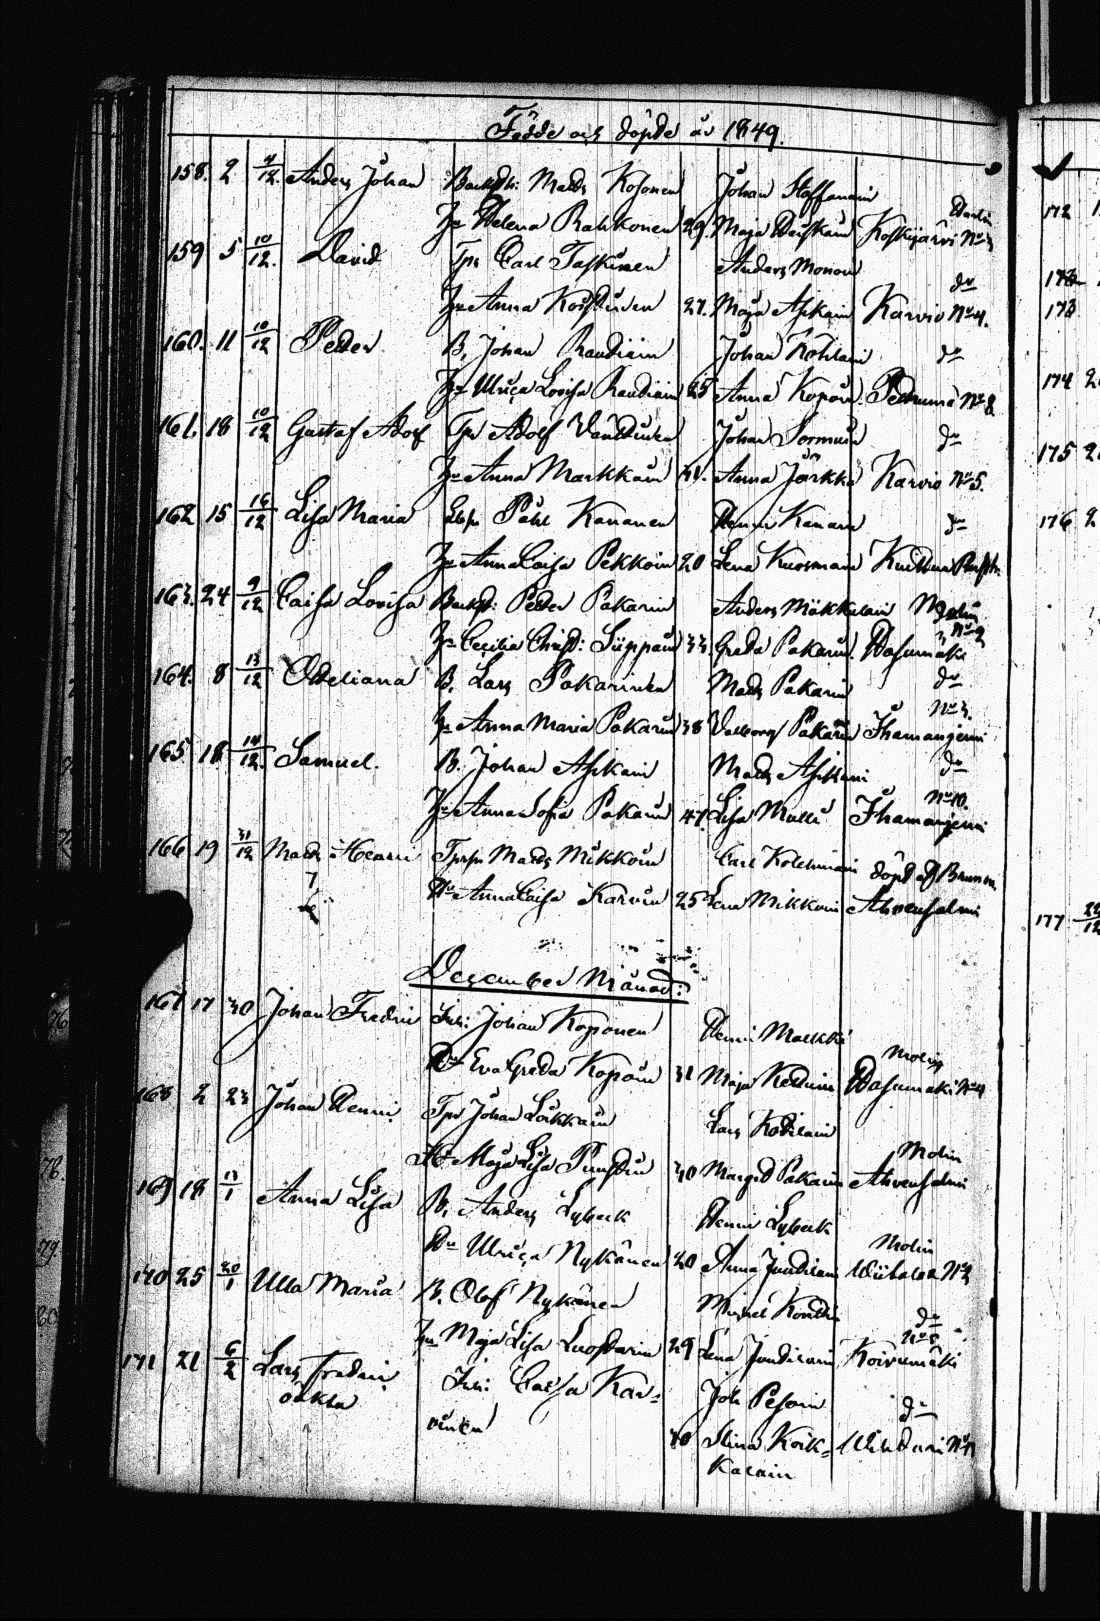 Födde och döpde år 1849.
158. 2 9/12. Anders Johan Backstk: Matts Kosonen Johan Hoffrenain
H:u Helena Rahkonen 29. Maja Heiskain Koskijärvi No 3
159 5 10/12. David Tpr Carl Taskinen Anders Monon do
H:u Anna Korhonen 27. Maja Asikain Karvio No 4.
160. 11 10/12 Petter B. Johan Raudiain Johan Kohlain do
H:u Ulrica Lovisa Raudiain 25 Anna Kopoin Petruma No 8
161. 18 10/12 Gustaf Adolf Tpr Adolf Väntinen Johan Sormuin do
H:u Anna Markkain 41. Anna Järkkä Karvio No 5.
162 15 16/12 Lisa Maria Påhl Kananen Henric Kanain do
H:u Anna Caisa Pekkoin 20 Lena Kuosmain
163. 24 9/12 Caisa Lovisa Backstk: Petter Pakarin Anders Mökkelain No 2
H:u Cecilia Christ: Siippain 33. Greta Pakarin Hasumäki
164. 8 13/12 Otteliana B. Lars Pakarinen Matts Pakarin do
No 3.
H:u Anna Maria Pakarin 38 Valborg Pakarin Ihamanjemi
165 18 14/12. Samuel. B. Johan Asikain Matts Asikain do
No 10.
H:u Anna Sofia Pakarin 47. Lisa Mutti Ihamanjemi
166 19 31/12 Matts Henric Matts Mikkoin Carl Kolehmain döpt af Brunou.
H:u Anna Caisa Karvin 25 Lena Mikkoin Ahvensalmi
December Månad:
167 17 30 Johan Fredric Inh: Johan Koponen Henric Malkki
Molin
H:u Eva Greta Kopoin 31 Maja Kettuin Hasumäki No 4
168 2 23 Johan Henric Tpr Johan Luukkain Lars Kotilain
Molin
H:u Maja Lisa Puustin 30 Margret Pakarin Ahvensalmi
169 18 13/1 Anna Lisa B. Anders Lybeck Henric Lybeck
Molin
H:u Ulrica Nykänen 20 Anna Juutilain No 2
170 25 20/1 Ulla Maria B. Olof Nykänen Michel Kontin do
No 5
H:u Maja Lisa Luostarin 29 Lena Juutilain Koivumäki
171 21 6/2 Lars Fredric Inh: Caisa Kar= Joh Pesoin do
oäkta vinen 30 Stina Kork= Wihtari No 11
kalain